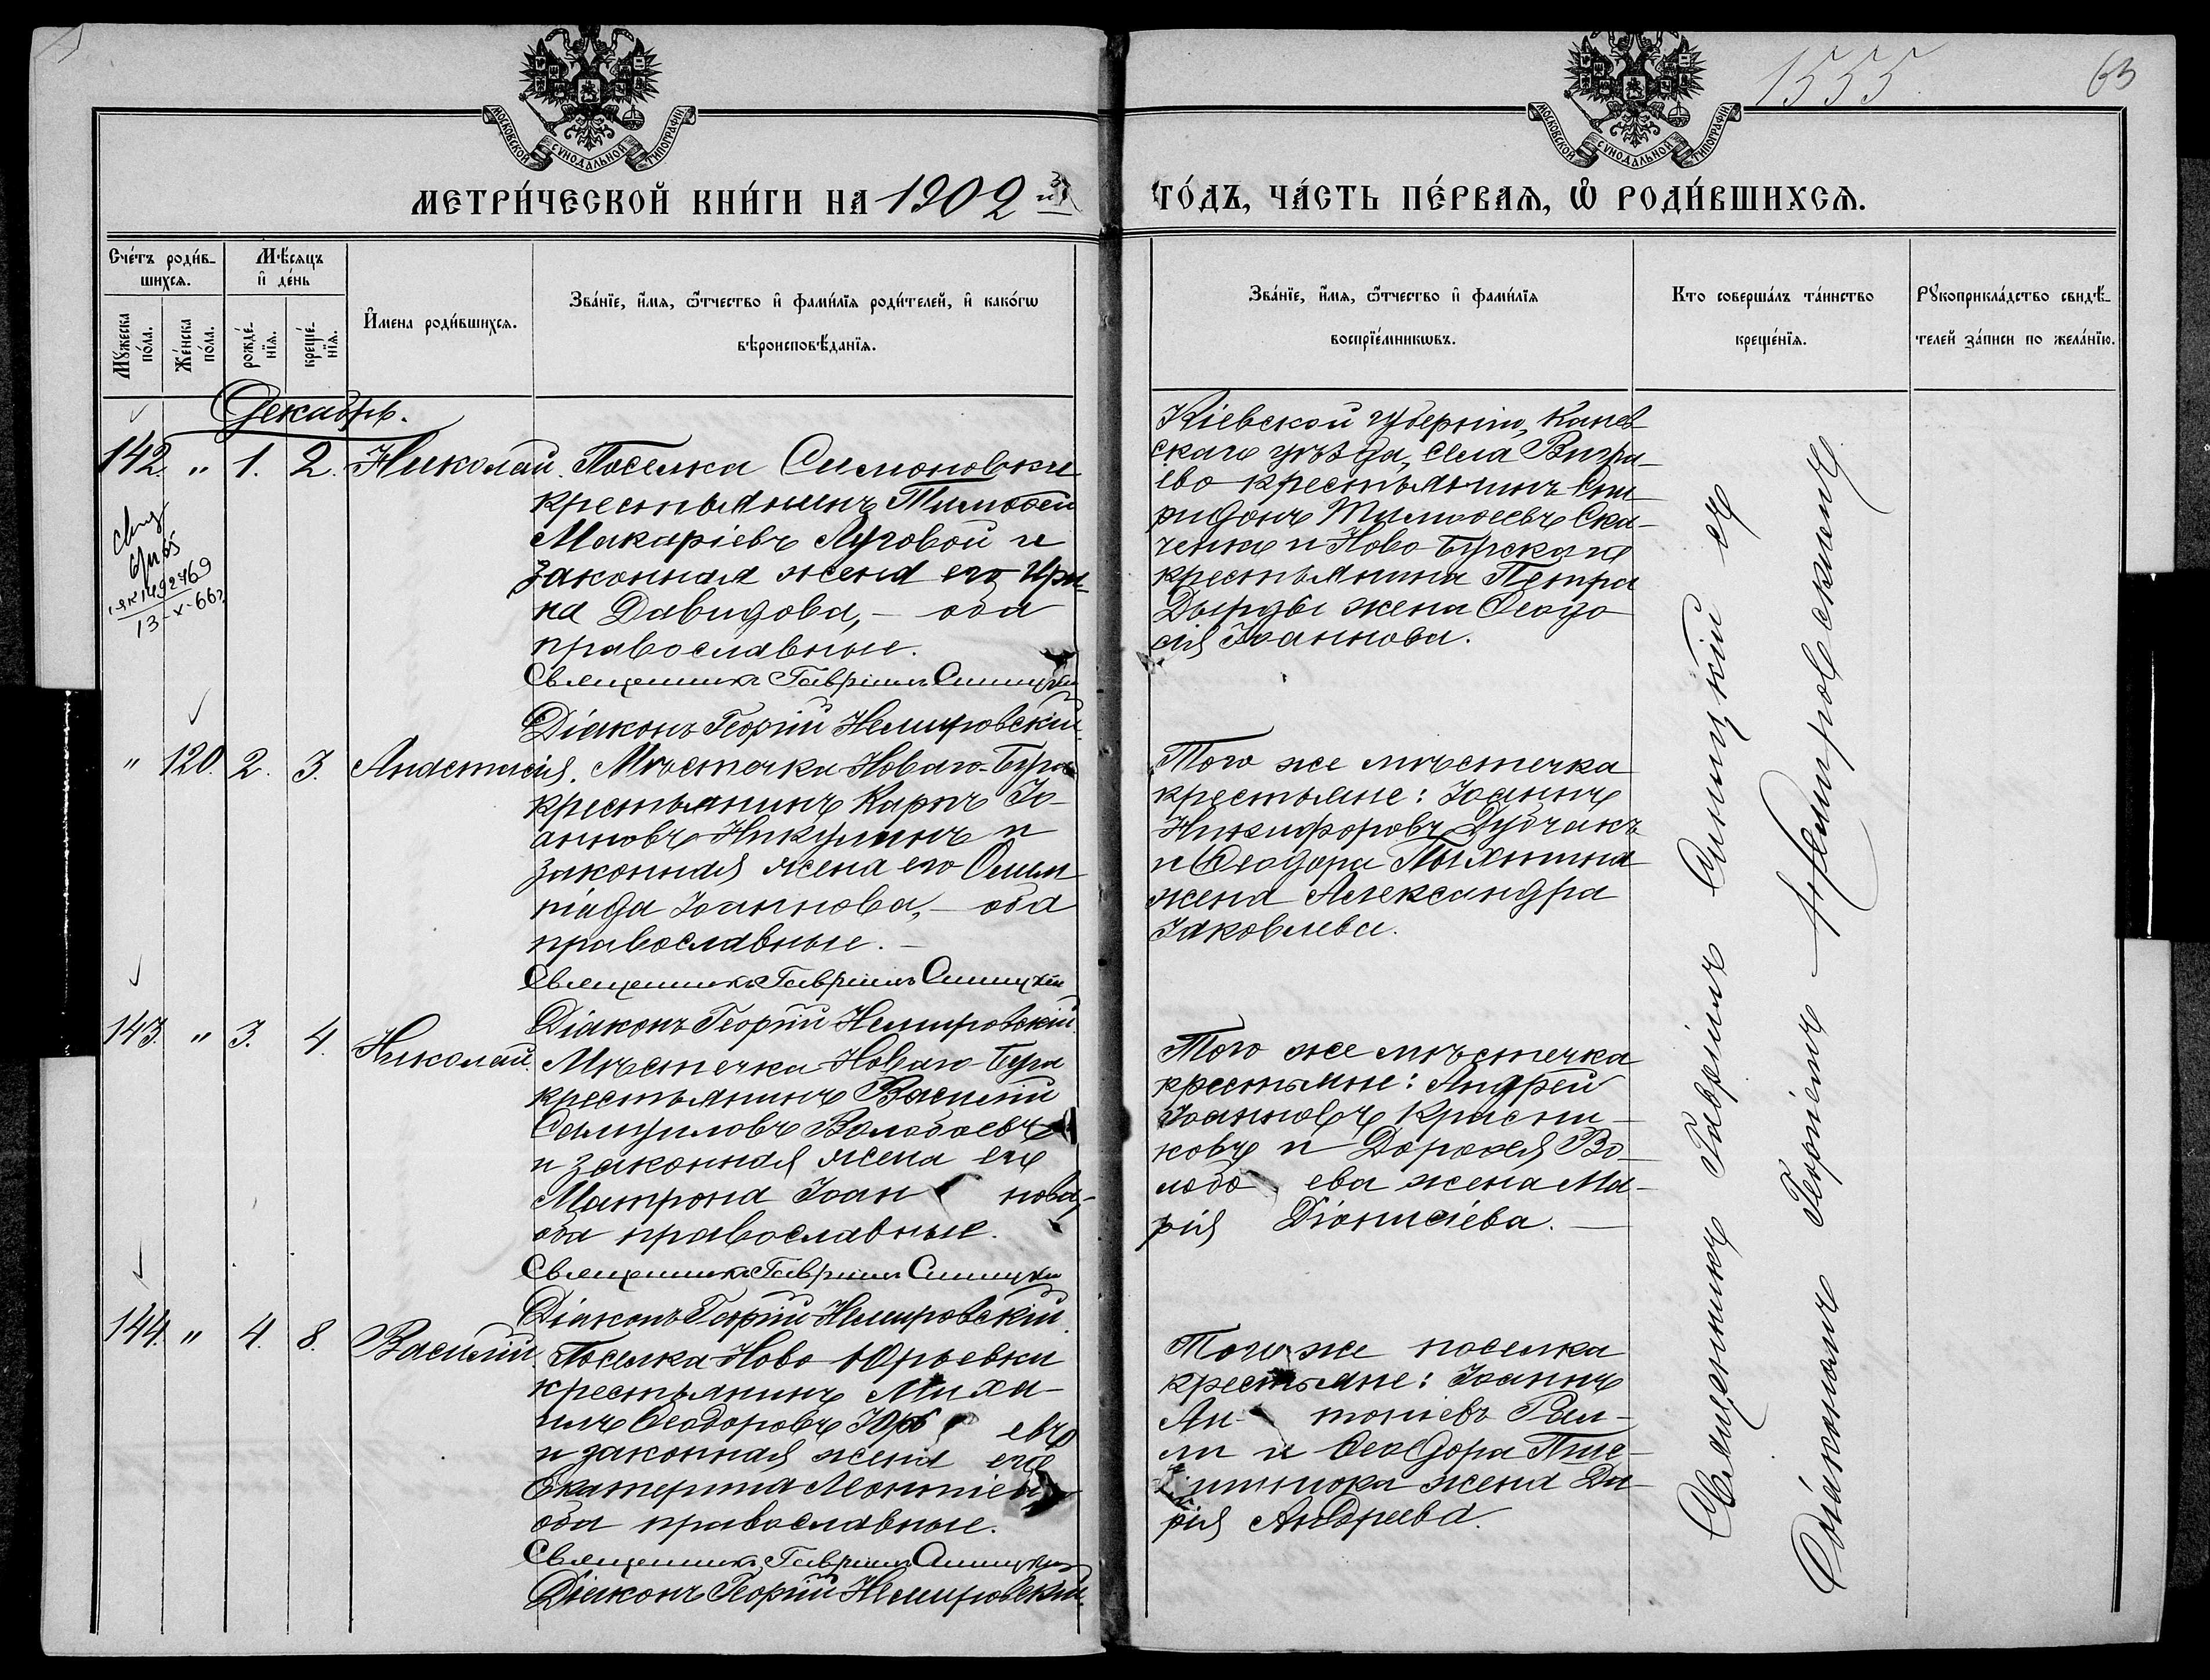 1555
63
МОСКОВСКОЙ СѴНОДАЛЬНОЙ ТИПОГРАФІИ
МОСКОВСКОЙ СѴНОДАЛЬНОЙ ТИПОГРАФІИ
МЕТРИ́ЧЕСКОЙ КНИ́ГИ НА 1902й
ГО́ДЪ, ЧА́СТЬ ПЕ́РВАѦ, Ѡ҆ РОДИ́ВШИХСѦ.
Сче́тъ роди́в-
шихсѧ.
Мꙋ́жеска по́ла.
Же́нска по́ла.
Мѣ́сѧцъ
и҆ де́нь
рожде́-
нїѧ.
креще́-
нїѧ.
И҆мена роди́вшихсѧ.
Зва́нїе, и҆́мѧ, ѻ҆́тчество и҆ фами́лїѧ роди́телей, и҆ како́гѡ
вѣроисповѣ́данїѧ.
Зва́нїе, и҆́мѧ, ѻ҆́тчество и҆ фами́лїѧ
воспрїе́мникѡвъ.
Кто соверша́лъ та́инство
креще́нїѧ.
Рꙋкоприкла́дство свидѣ́-
телей за́писи по жела́нїю.
Декабрь.
142. " 1. 2. Николай. Поселка Симоновки
крестьянинъ Тимоѳей
Макаріевъ Луговой и
законная жена его Ири-
на Давидова, – оба
православные.
Священникъ Гавріилъ Синицкій
Діаконъ Георгій Немировскій.
1492769
13-V-66г
Кіевской губерніи, Канев-
скаго уѣзда, села
ево крестьянинъ Спи-
ридонъ Тимоѳеевъ Ска-
ченко и Ново Бугскаго
крестьянина Петра
Дырды жена Ѳеодо
сія Іоаннова.
" 120. 2. 3. Анастасія. Мѣстечка Новаго-Буга
крестьянинъ Карпъ Іо-
анновъ Никулинъ и
законная жена его Олим
піада Іоаннова, – оба
православные. –
Священникъ Гавріилъ Синицкій
Діаконъ Георгій Немировскій.
Того же мѣстечка
крестьяне: Іоаннъ
Никифоровъ Дубчакъ
и Ѳеодора Пыхтина
жена Александра
Іаковлева.
143. " 3. 4. Николай. Мѣстечка Новаго Буга
крестьянинъ Василій
Самуиловъ Волобоевъ
и законная жена его
Матрона Іоаннова, –
оба православные.
Священникъ Гавріилъ Синицкій
Діаконъ Георгій Немировскій.
Того же мѣстечка
крестьяне: Андрей
Іоанновъ Красни-
ковъ и Дороѳея Во-
лобоева жена Ма-
рія Діонисіева. –
144. " 4. 8. Василій. Поселка Ново Юрьевки
крестьянинъ Миха-
илъ Ѳеодоровъ Юрьевъ
и законная жена его
Екатерина Леонтіева
оба православные.
Священникъ Гавріилъ Синицкій
Діаконъ Георгій Немировскій.
Того же поселка
крестьяне: Іоаннъ
Антоніевъ
и Ѳеодора
жена Да-
рія Андреева.
Священникъ Гавріилъ Синицкій съ
Діакономъ Георгіемъ Немировскимъ.